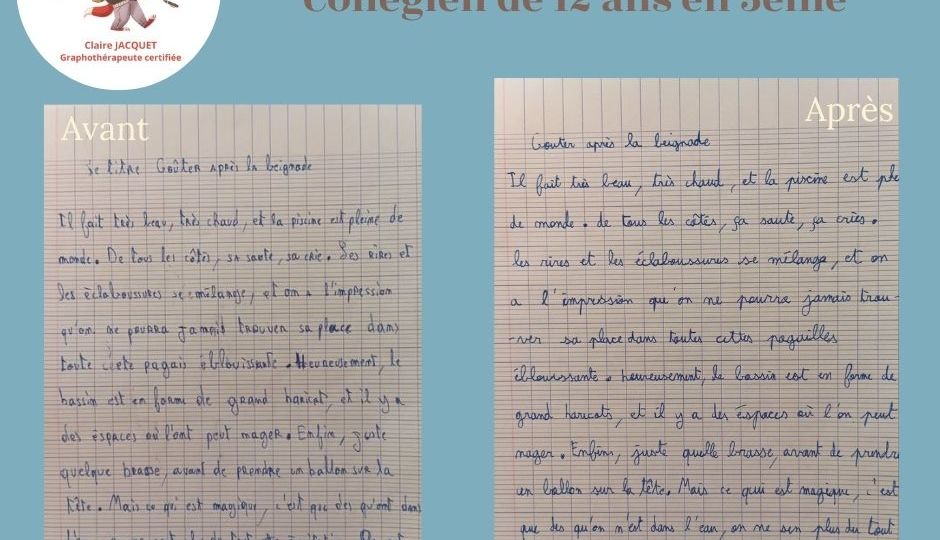 Collégien de 12 ans en 5eme
Claire JACQUET
Graphothérapeute certifiée
Avant
se titre Goûter après la beignade
Il fait très beau, très chaud, et la piscine est pleine de
monde. De tous les côtés, sa saute, sa crie. Ses rires et
Ses éclaboussures se mélange, et on a l'impression
qu'on ne pourra jamais trouver sa place dans
toute cete pagais éblouissante. Heureusement, le
bassin est en forme de grand haricat, et il y a
des éspaces où l'ont peut mager. Enfin, juste
quelque brasse, avant de prendre un ballon sur la
tête. Mais ce qui est magique, c'est que dès qu'ont dans
Après
Gouter après la beignade
Il fait très beau, très chaud, et la piscine est ple
de monde. de tous les côtés, ça saute, ça cries.
les rires et les éclaboussures se mélange, et on
a l'impression qu'on ne pourra jamais trou-
-ver sa place dans toutes cettes pagailles
éblouissante. heureusement, le bassin est en forme de
grand haricots, et il y a des éspaces où l'on peut
nager. Enfins, juste quelle brasse, avant de prendre
un ballon sur la tête. Mais ce quii est magique, c'est
que des qu'on n'est dans l'eau, on ne sen plus du tout